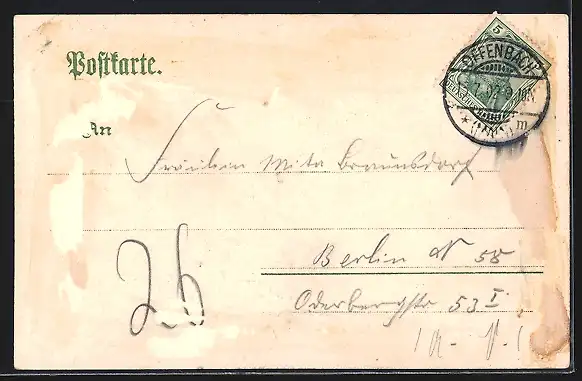 Postkarte.
5
OFFENBACH
An
Fräulein Mita Braunsdorf
Berlin N 58
Oderbergstr 53 I
2.6